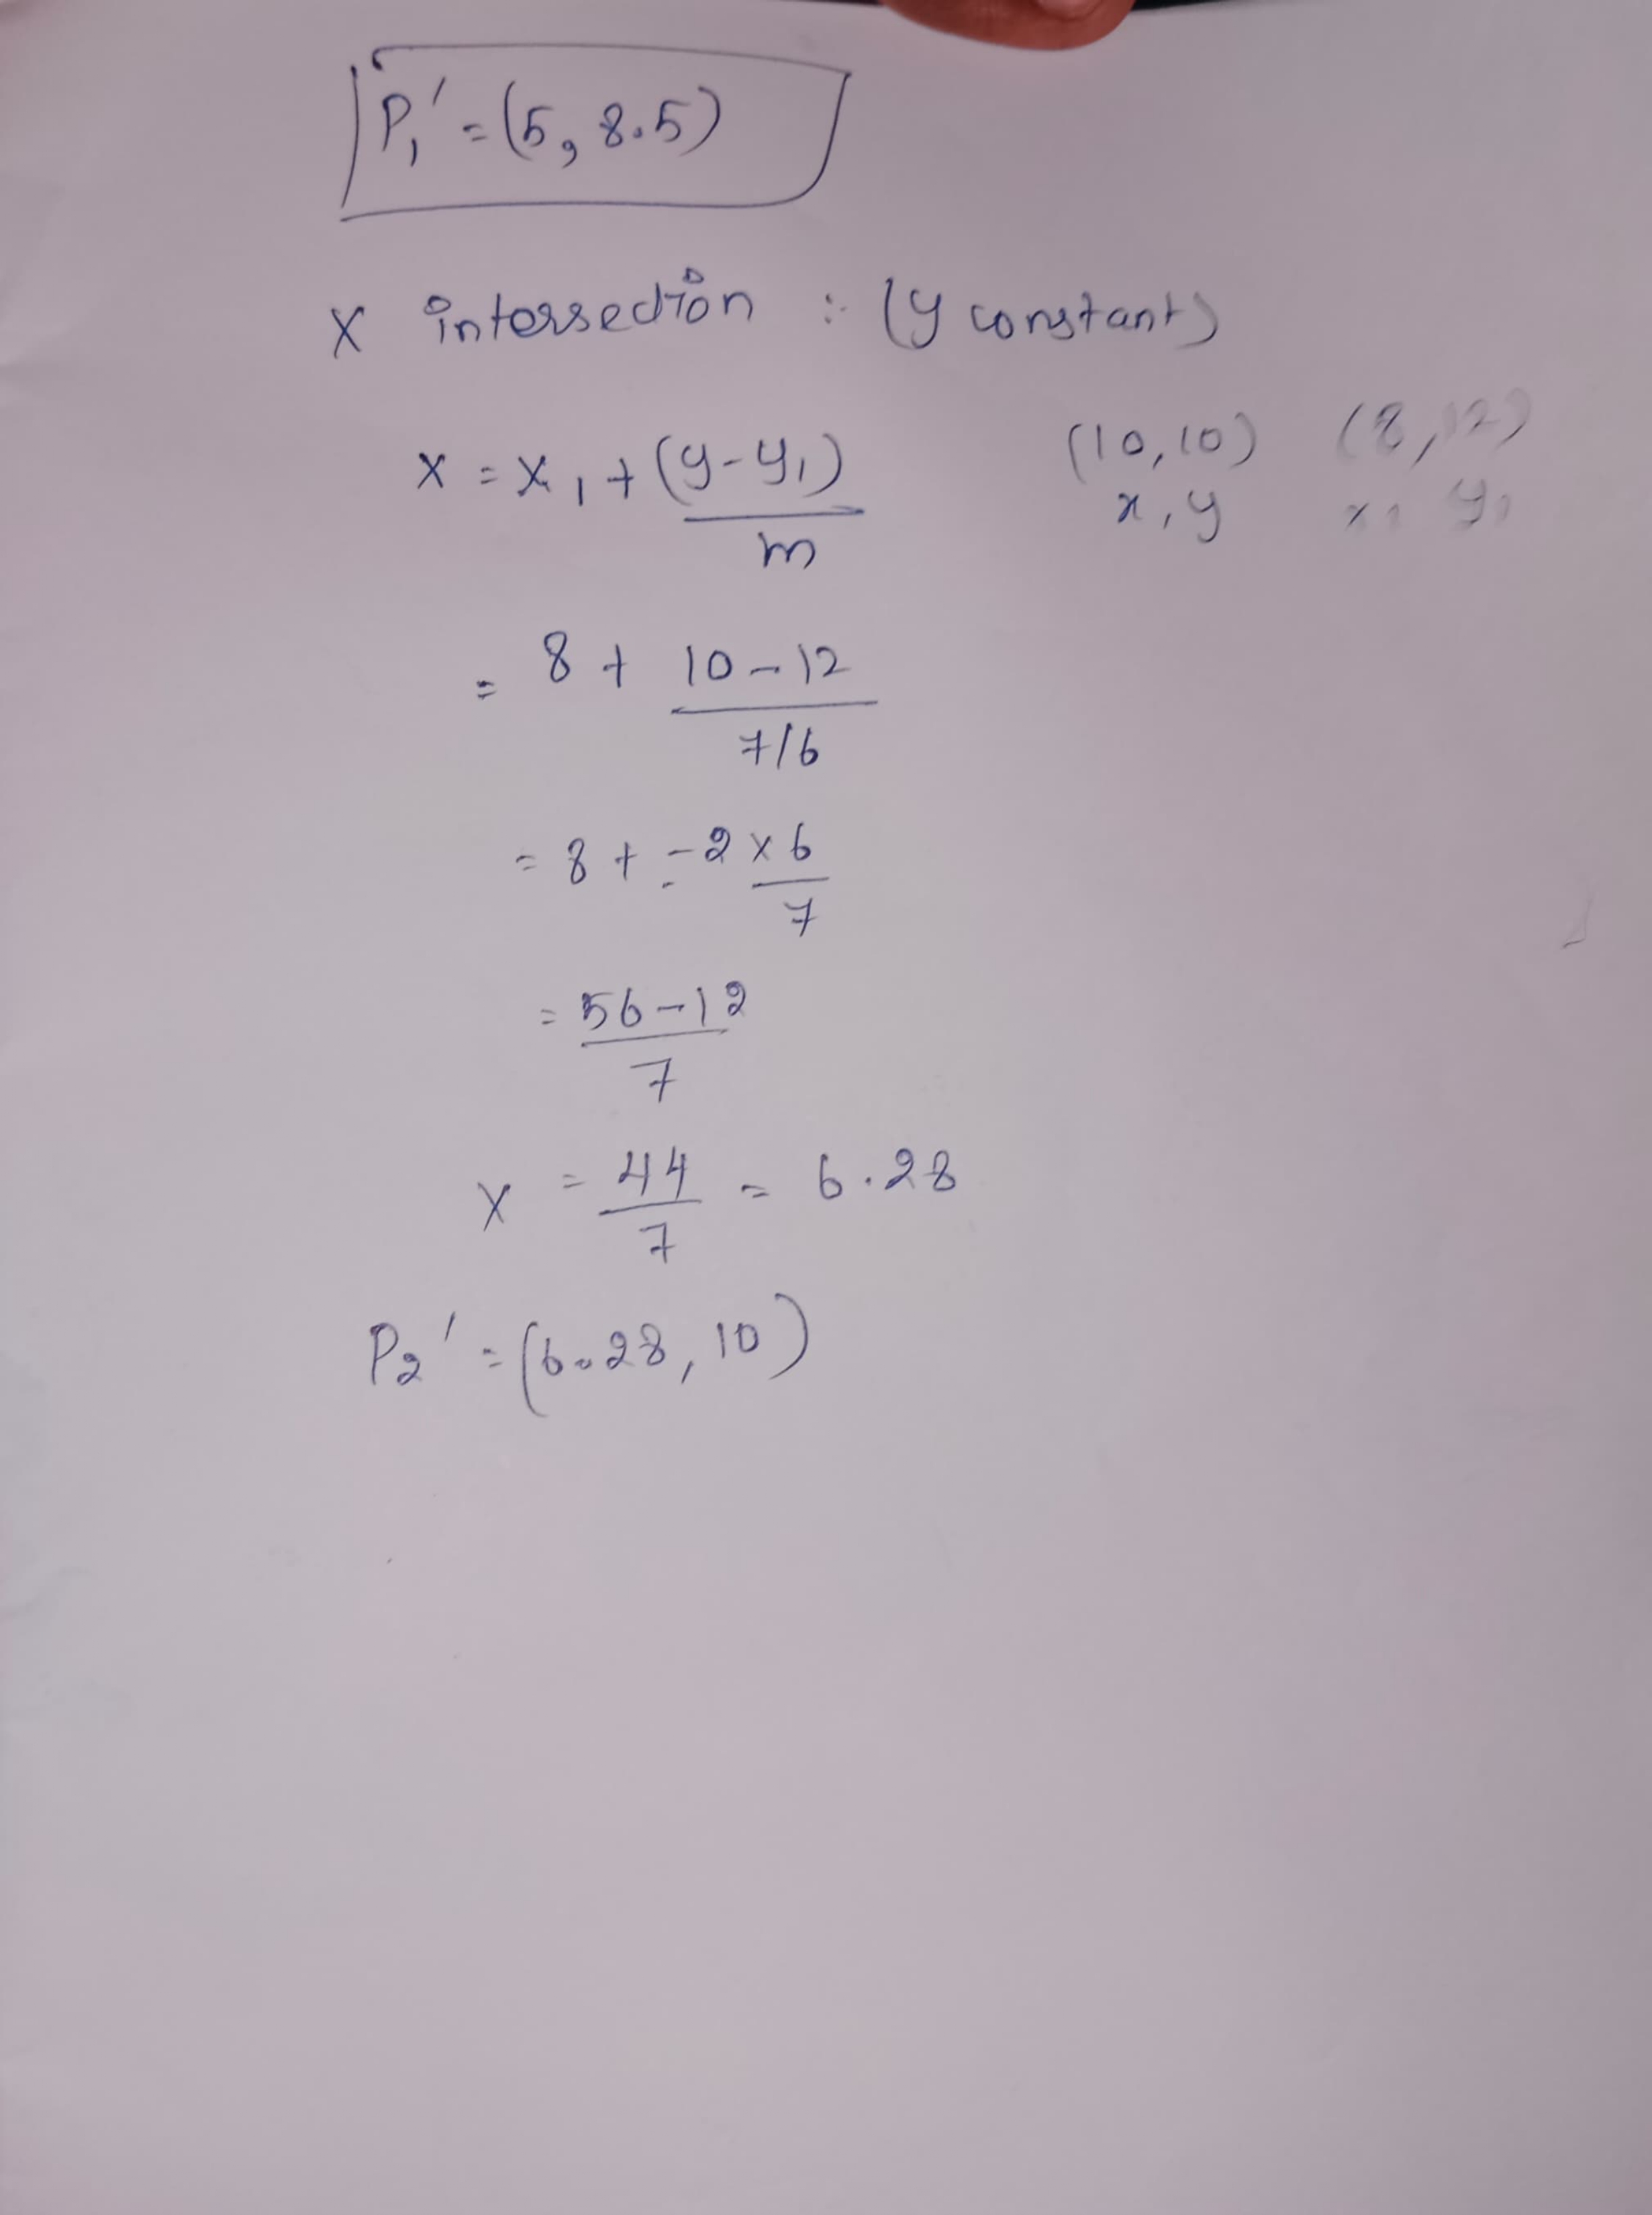 P₁' = (5, 8.5)
X intersection :- (y constant)
x = x₁ + (y-y₁) / m
(10,10) (8,12)
x, y x₁ y₁
= 8 + 10-12 / 7/6
= 8 + -2 x 6 / 7
= 56-12 / 7
X = 44 / 7 = 6.28
P₂' = (6.28, 10)